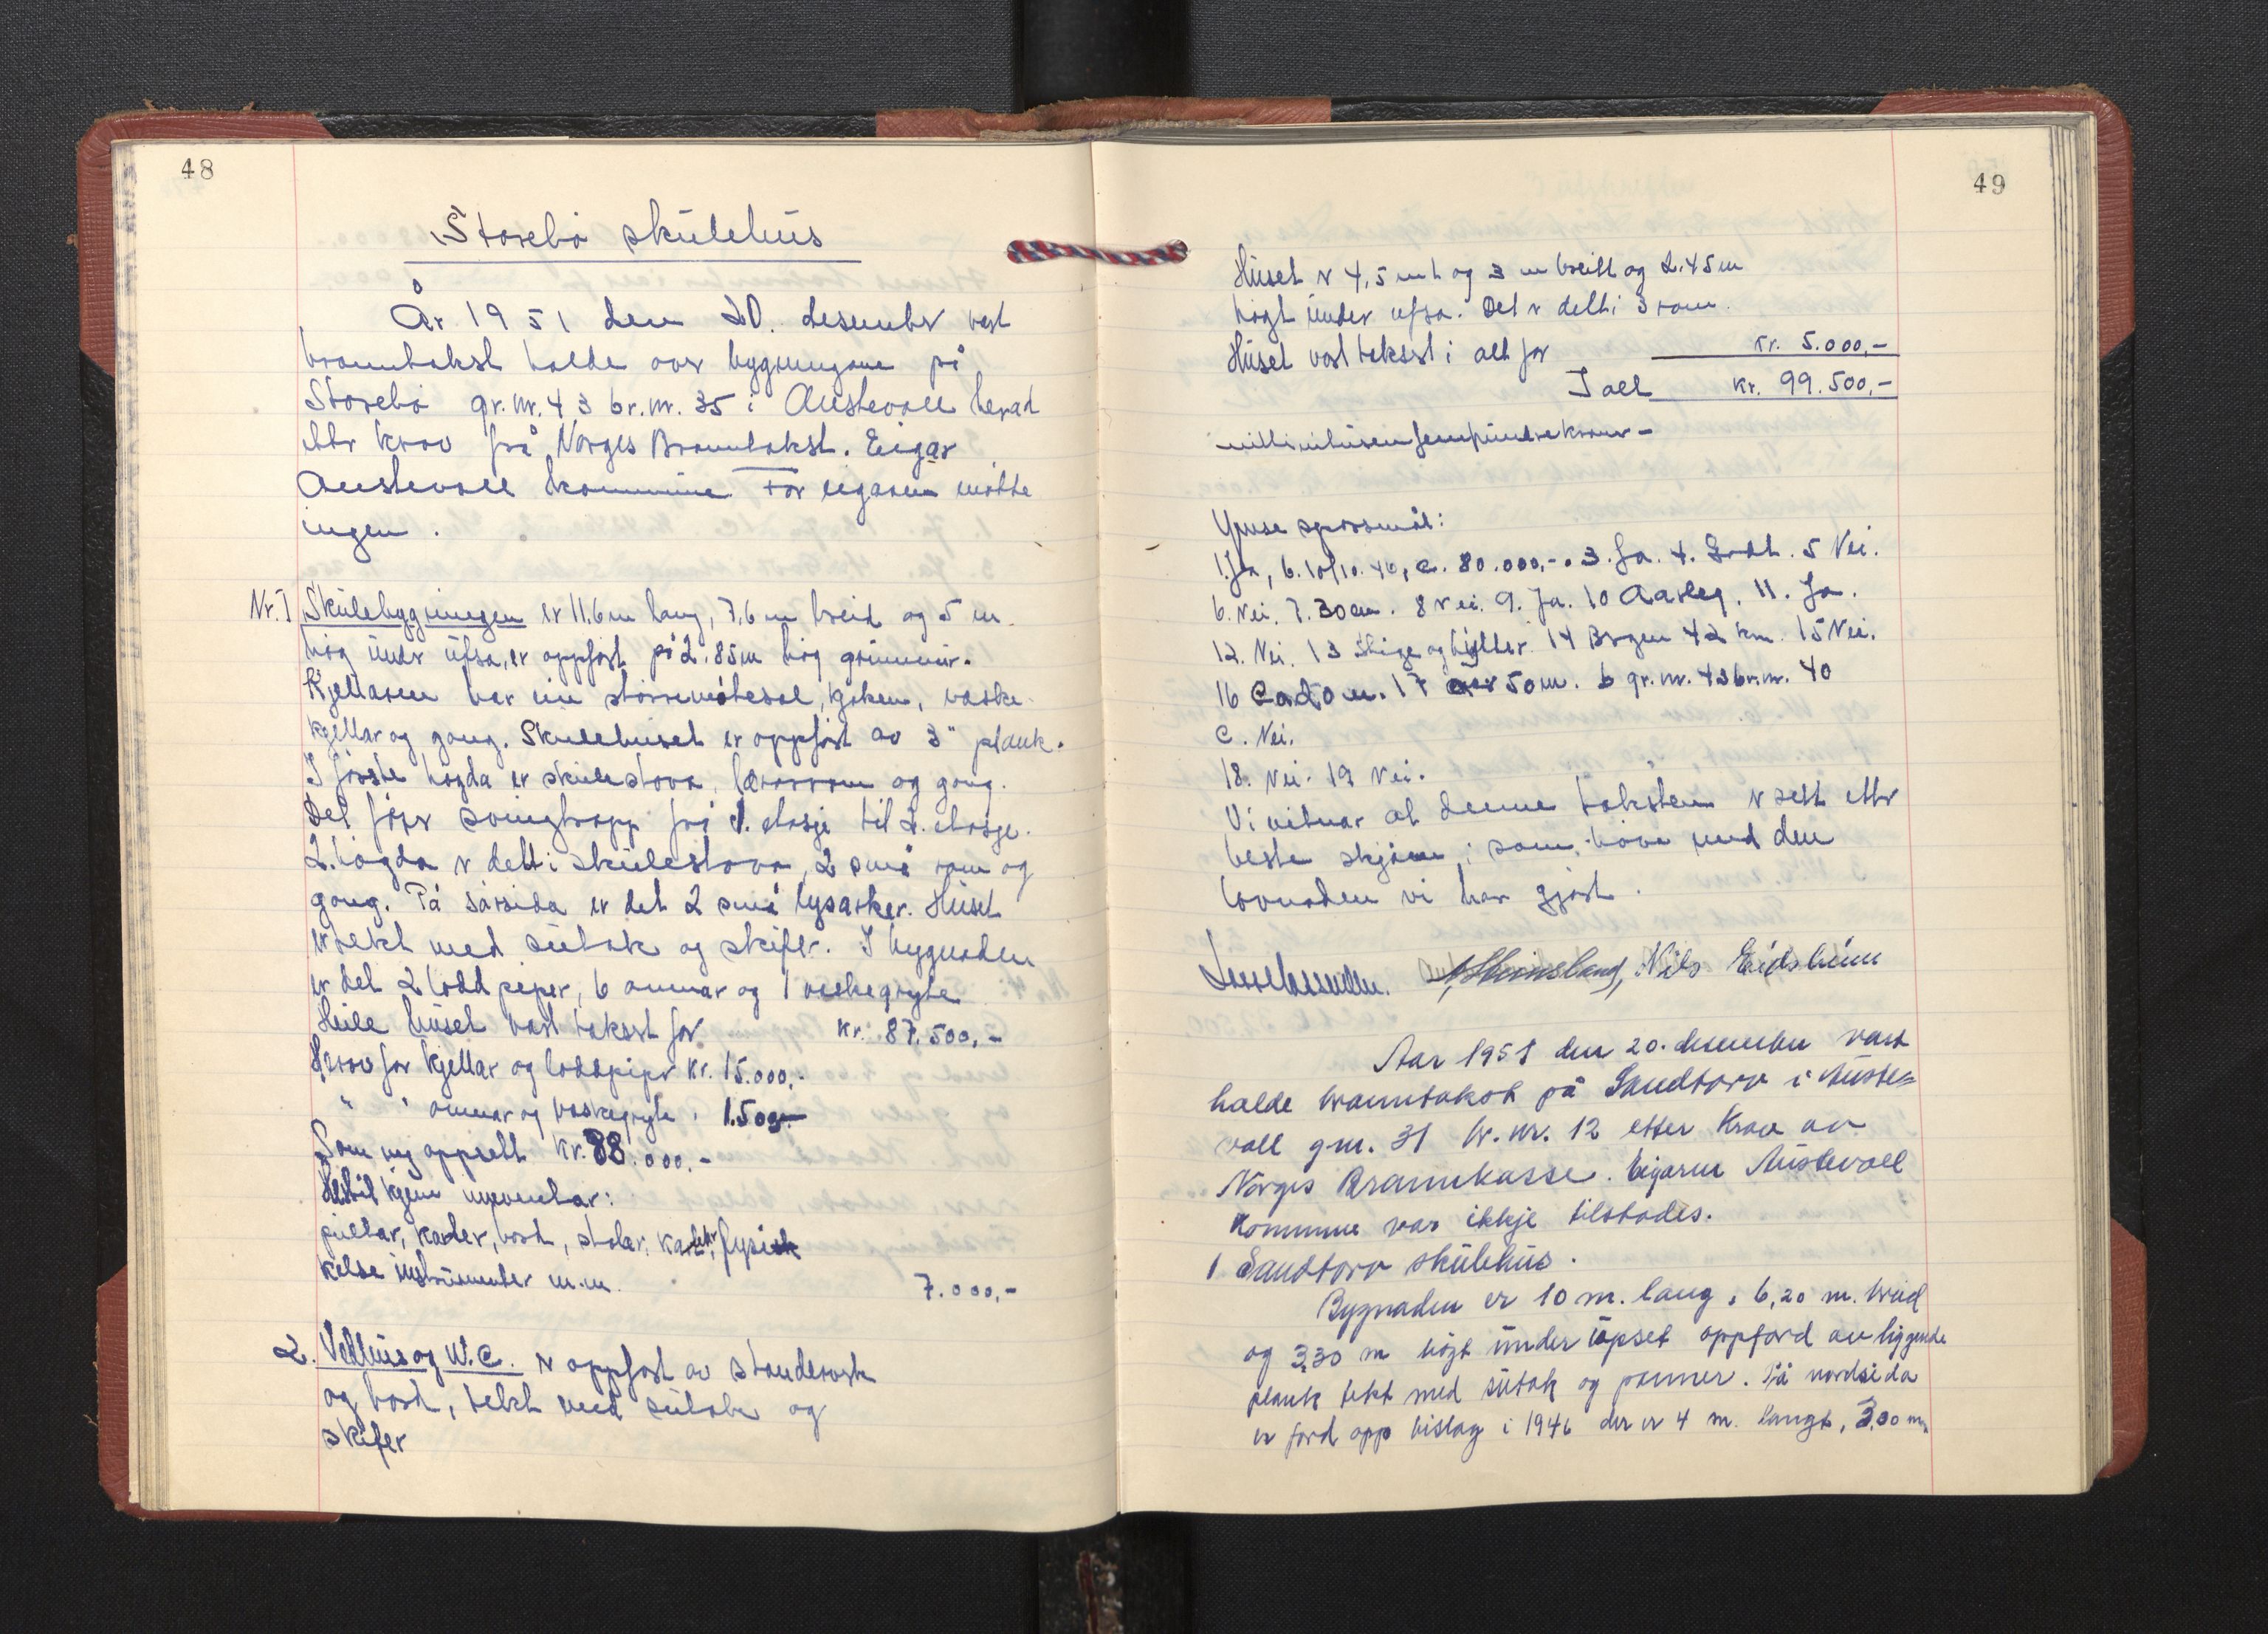 48
Storebø skülehüs
År 1951 den 20. desember vart
branntakst halde over bygningane på
Storebø gr.nr. 43 br.nr. 35 i Austevoll herad
etter krav frå Norges Branntakst. Eigar
Austevoll kommune For eigaren møtte
ingen.
Nr. I Skülebygningen er 11,6 m lang, 7,6 m breid og 5 m.
høg ünder üfsa, er oppført på 2.85 m høg grünnmür.
Kjellaren har ein større møtesal, kjøken, vaske-
kjellar og gang. Skulehuset er oppført av 3" plank.
I første høgda er skülestova, lærarrom og gang.
Det fører svingtrapp frå 1. etasje til 2. etasje.
2. høgda er delt i skülestova, 2 små rom og
gang. På sørsida er det 2 små lysarker. Hüset
er tekt med sütak og skifer. I bygnaden
er det 2 lodd piper, 6 omnar og 1 vaskegryte
Heile hüset vart taksert for kr. 87.500,-
Herav for kjellar og loddpiper kr. 15.000,-
" " omnar og vaskegryte " 1.500,-
Som ny oppsett kr. 88.000.-
Hertil kjem inventar:
pültar, kateter, bord, stolar, karter, fysik
kelse instrümenter m.m. 7.000,-
2. Vedhüs og W.C. er oppført av standerverk
og bord, tekt med sütak og
skifer
49
Hüset er 4,5 m l og 3 m breitt og 2.45 m
høgt ünder ufsa. Det er delt i 3 rom.
Hüset vart taksert i alt for kr. 5.000,-
I alt kr. 99.500,-
nittinitüsenfemhündrekroner -
Ymse spørsmål:
1. Ja, b. 10/10. 40, c. 80.000,-. 3. Ja. 4. Godt. 5 Nei.
6. Nei. 7. 30 cm. 8 Nei. 9. Ja. 10 Aarleg. 11. Ja.
12. Nei. 13 Stige og bøtter. 14 Bergen 42 km. 15 Nei.
16 Ca 20 m. 17 over 50 m. b gr.nr. 43 br.nr. 40
c. Nei.
18. Nei. 19 Nei.
Vi vitnar at denne taksten er sett etter
beste skjønn i sam-høve med den
lovnaden vi har gjort.
Nils Eidsheim
Aar 1951 den 20. desember vart
halde branntakst på Sandtorv i Auste=
voll g.nr. 31 br. nr. 12 etter Krav av
Norges Brannkasse. Eigaren Austevoll
Kommune var ikkje tilstades.
1 Sandtorv skülehüs.
Bygnaden er 10 m. lang, 6,20 m. breid
og 3,30 m høgt ünder üpset oppførd av liggende
plank tekt med sütak og panner. På nordsida
er førd opp bislag i 1946 der er 4 m. langt, 3,00 m.